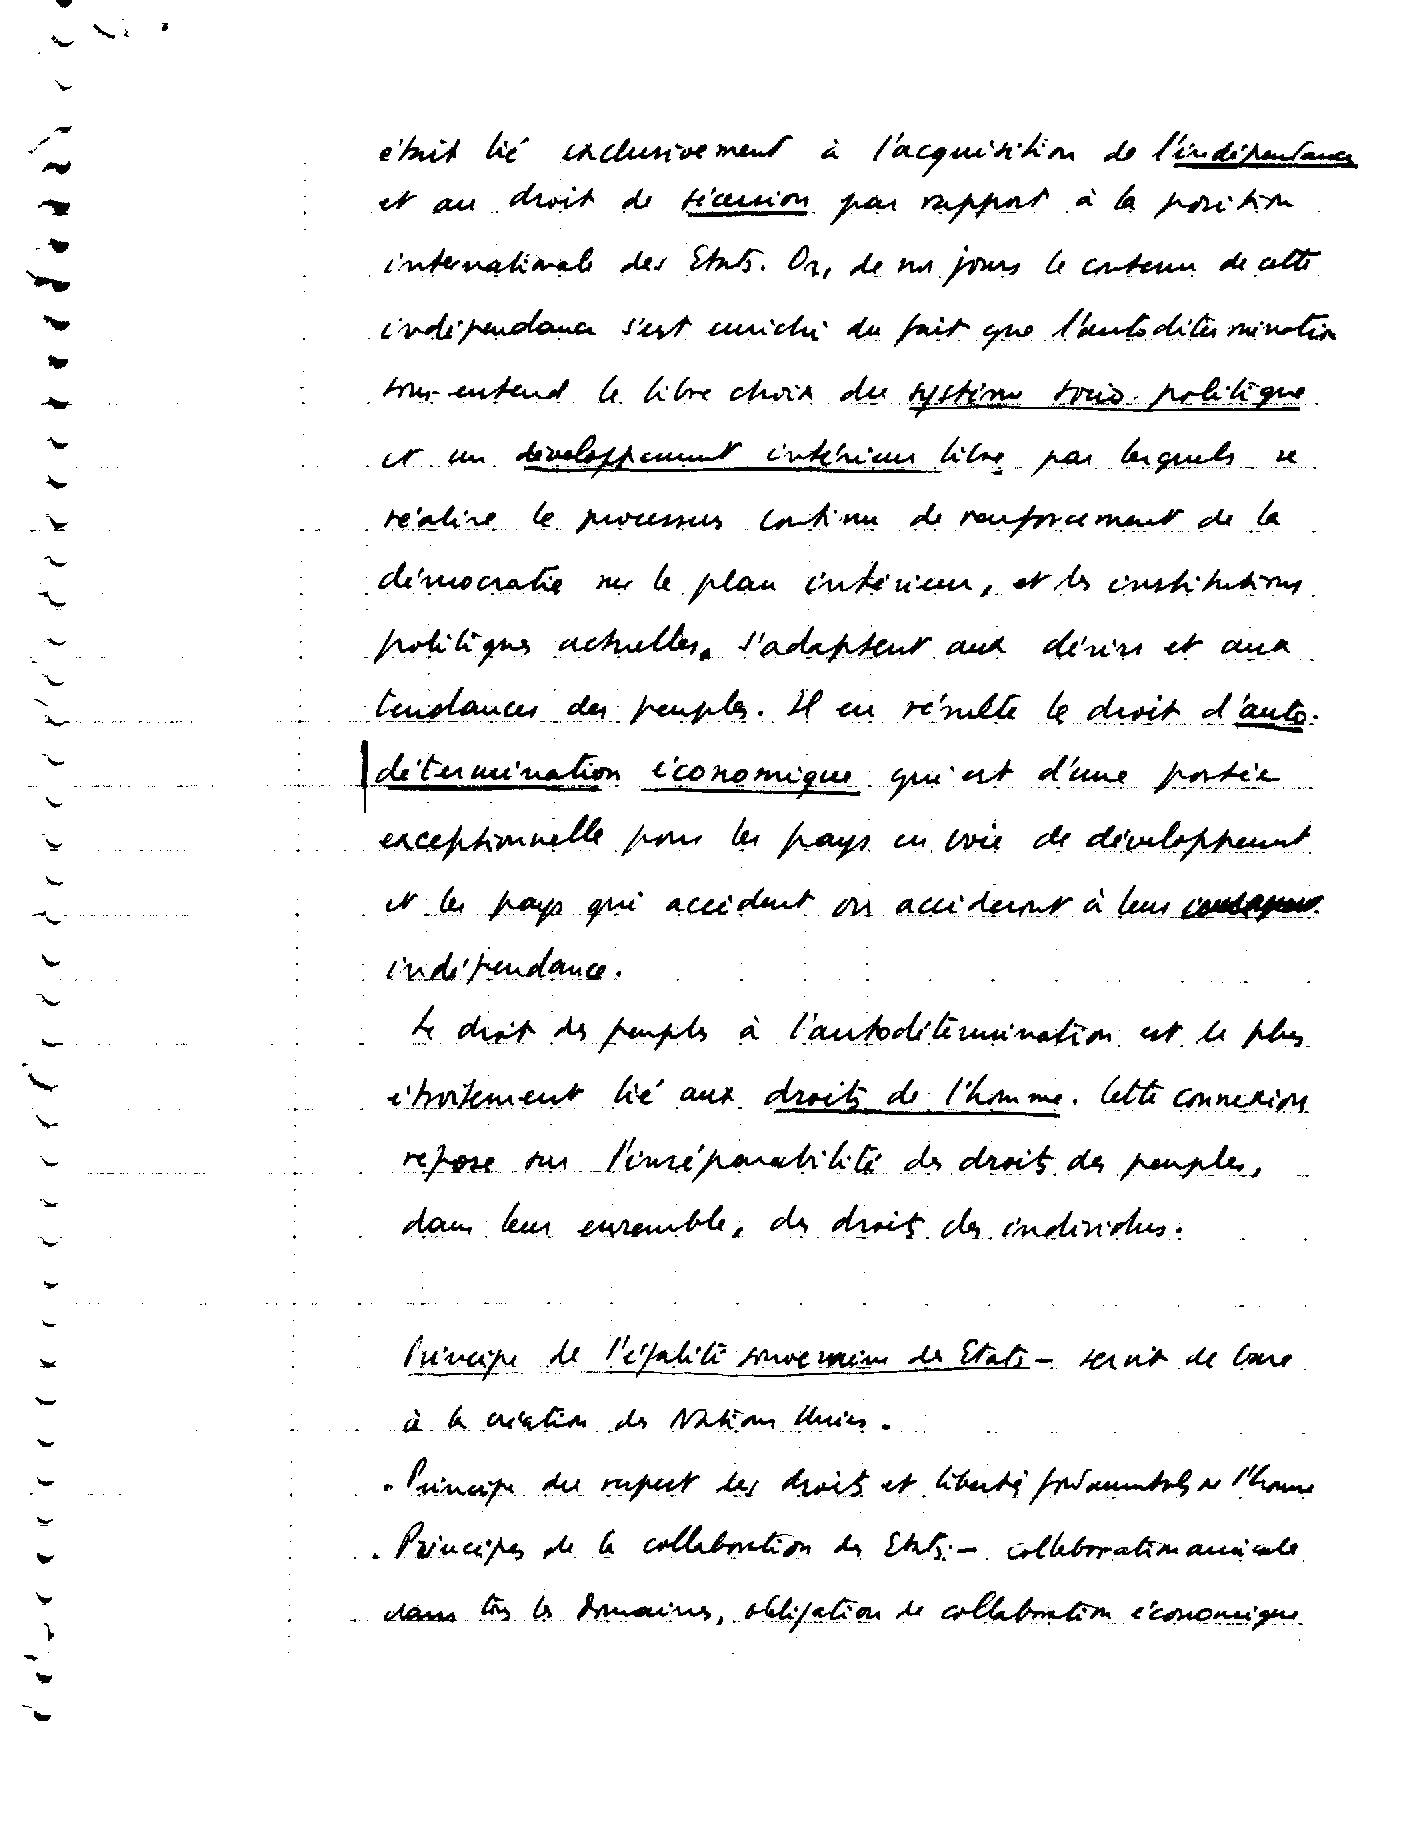 était lié exclusivement à l'acquisition de l'indépendance
et au droit de sécession par rapport à la position
internationale des Etats. Or, de nos jours le contenu de cette
indépendance s'est enrichi du fait que l'autodétermination
sous-entend le libre choix du système socio-politique
et un développement intérieur libre par lesquels se
réalise le processus continu de renforcement de la
démocratie sur le plan intérieur, et les institutions
politiques actuelles, s'adaptent aux désirs et aux
tendances des peuples. Il en résulte le droit d'auto-
détermination économique qui est d'une portée
exceptionnelle pour les pays en voie de développement
et les pays qui accèdent ou accèderont à leur
indépendance.
Le droit des peuples à l'autodétermination est le plus
étroitement lié aux droits de l'homme. Cette connexion
repose sur l'inséparabilité des droits des peuples,
dans leur ensemble, des droits des individus.
Principe de l'égalité souveraine des Etats - servit de base
à la création des Nations Unies.
. Principe du respect des droits et libertés fondamentales de l'homme
. Principes de la collaboration des Etats - collaboration amicale
dans tous les domaines, obligation de collaboration économique